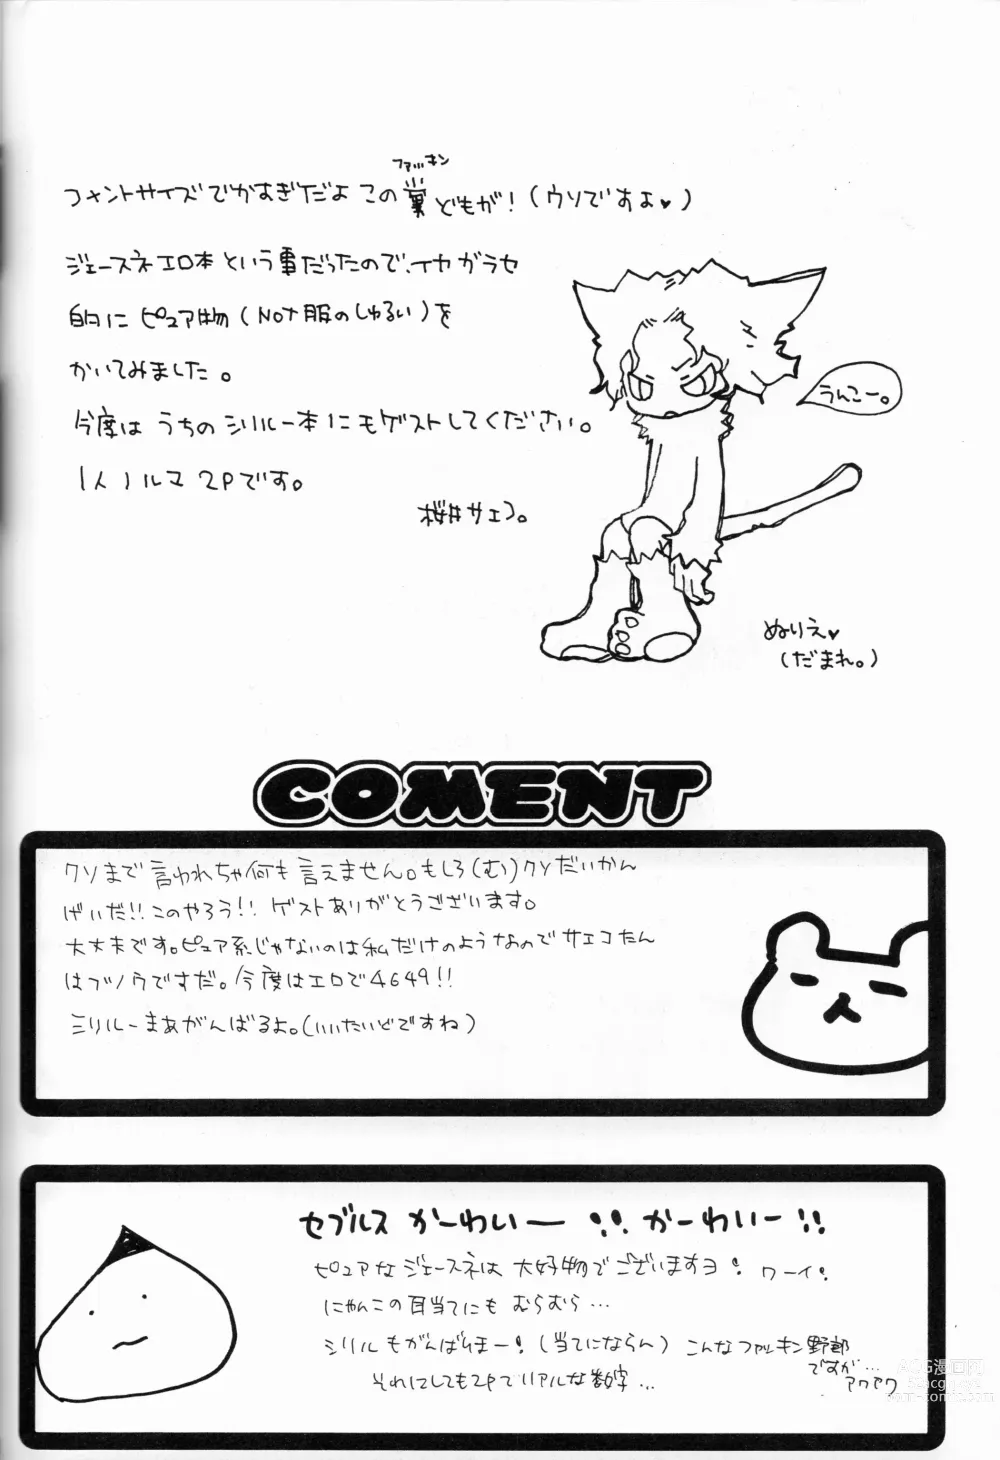 ファッキン
フォントサイズでかすぎだよ この糞どもが!(ウソですよ♥)
ジェースネエロ本という事だったので、イヤガラセ
的に ピュア物(NOT服のしゅるい)を
かいてみました。
今度は うちのシリルー本にもゲストしてください。
1人ノルマ 2Pです。
桜井サエコ。
うんこー。
ぬりえ♥
(だまれ。)
COMENT
クソまで言われちゃ何も言えません。もしろ(むし)クソだいかん
げいだ!!このやろう!! ゲストありがとうございます。
大丈夫です。ピュア系じゃないのは私だけのようなのでサエコたん
はブノウですだ。今度はエロで4649!!
シリルーまあがんばるよ。(いいたいどですね)
セブルス かーわいー !! かーわいー !!
ピュアなジェースネは 大好物でございますヨ! ワーイ!
にゃんこの耳当てにも むらむら…
シリルもがんばりまー!(当てにならん) こんなファッキン野郎
ですが…
アワアワ
それにしても2Pてリアルな数字…
ACG漫画网
www.acgmh.com